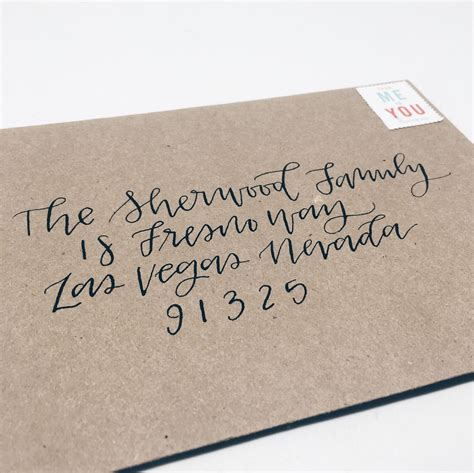 The Sherwood Family
18 Fresno Way
Las Vegas Nevada
91325
ME
YOU